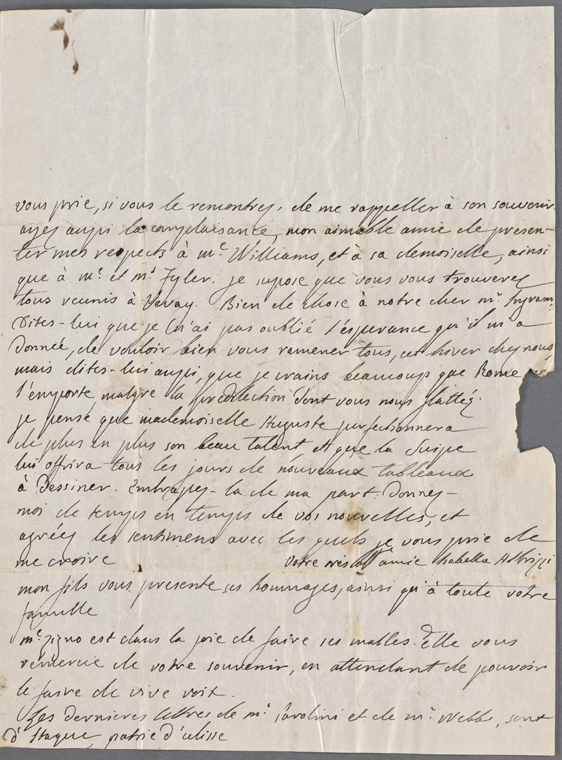 vous prie, si vous le remontres, de me rappeller à son souvenir
ayez aussi la complaisance, mon aimable amie de présen-
ter mes respects à mr. Williams, et à sa demoiselle, ainsi
que à mr. et me. Tyler. je supose que vous vous trouverez
tous reunis à Vevay. Bien de chose à notre cher mr. Ingram.
Dites-lui que je n'ai pas oublié l'esperance qu'il m'a
Donnée, de vouloir bien vous ramener tous, cet hiver chez nous
mais dites-lui aussi, que je crains beaucoup que Rome ne
l'emporte malgre la predilection dont vous nous flattéz.
je pense que mademoiselle Auguste perfectionnera
de plus en plus son beau talent et que la Suisse
lui offrira tous les jours de nouveaux tableaux
à Dessiner. Embrassez-la de ma part. Donnez-
moi de temps en temps de vos nouvelles, et
agréez les sentimens avec les quels je vous prie de
me croire votre amie Isabella Albrizzi
mon fils vous presente ses hommages, ainsi qu'à toute votre
famille
me. Zigno est dans la joie de faire ses malles. Elle vous
remercie de votre souvenir, en attendant de pouvoir
le faire de vive voix.
Les dernieres lettres de mr. et de mr. Webbe, sont
d'Itaque, patrie d'ulisse